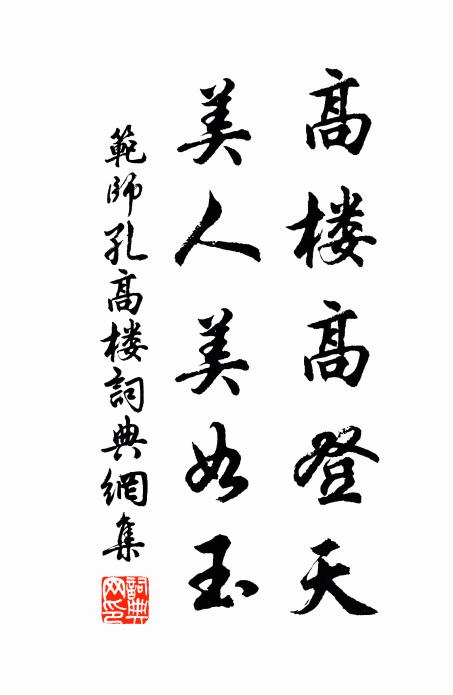 髙楼髙登天
美人美如玉
範師孔髙楼詞典網集
詞典网印